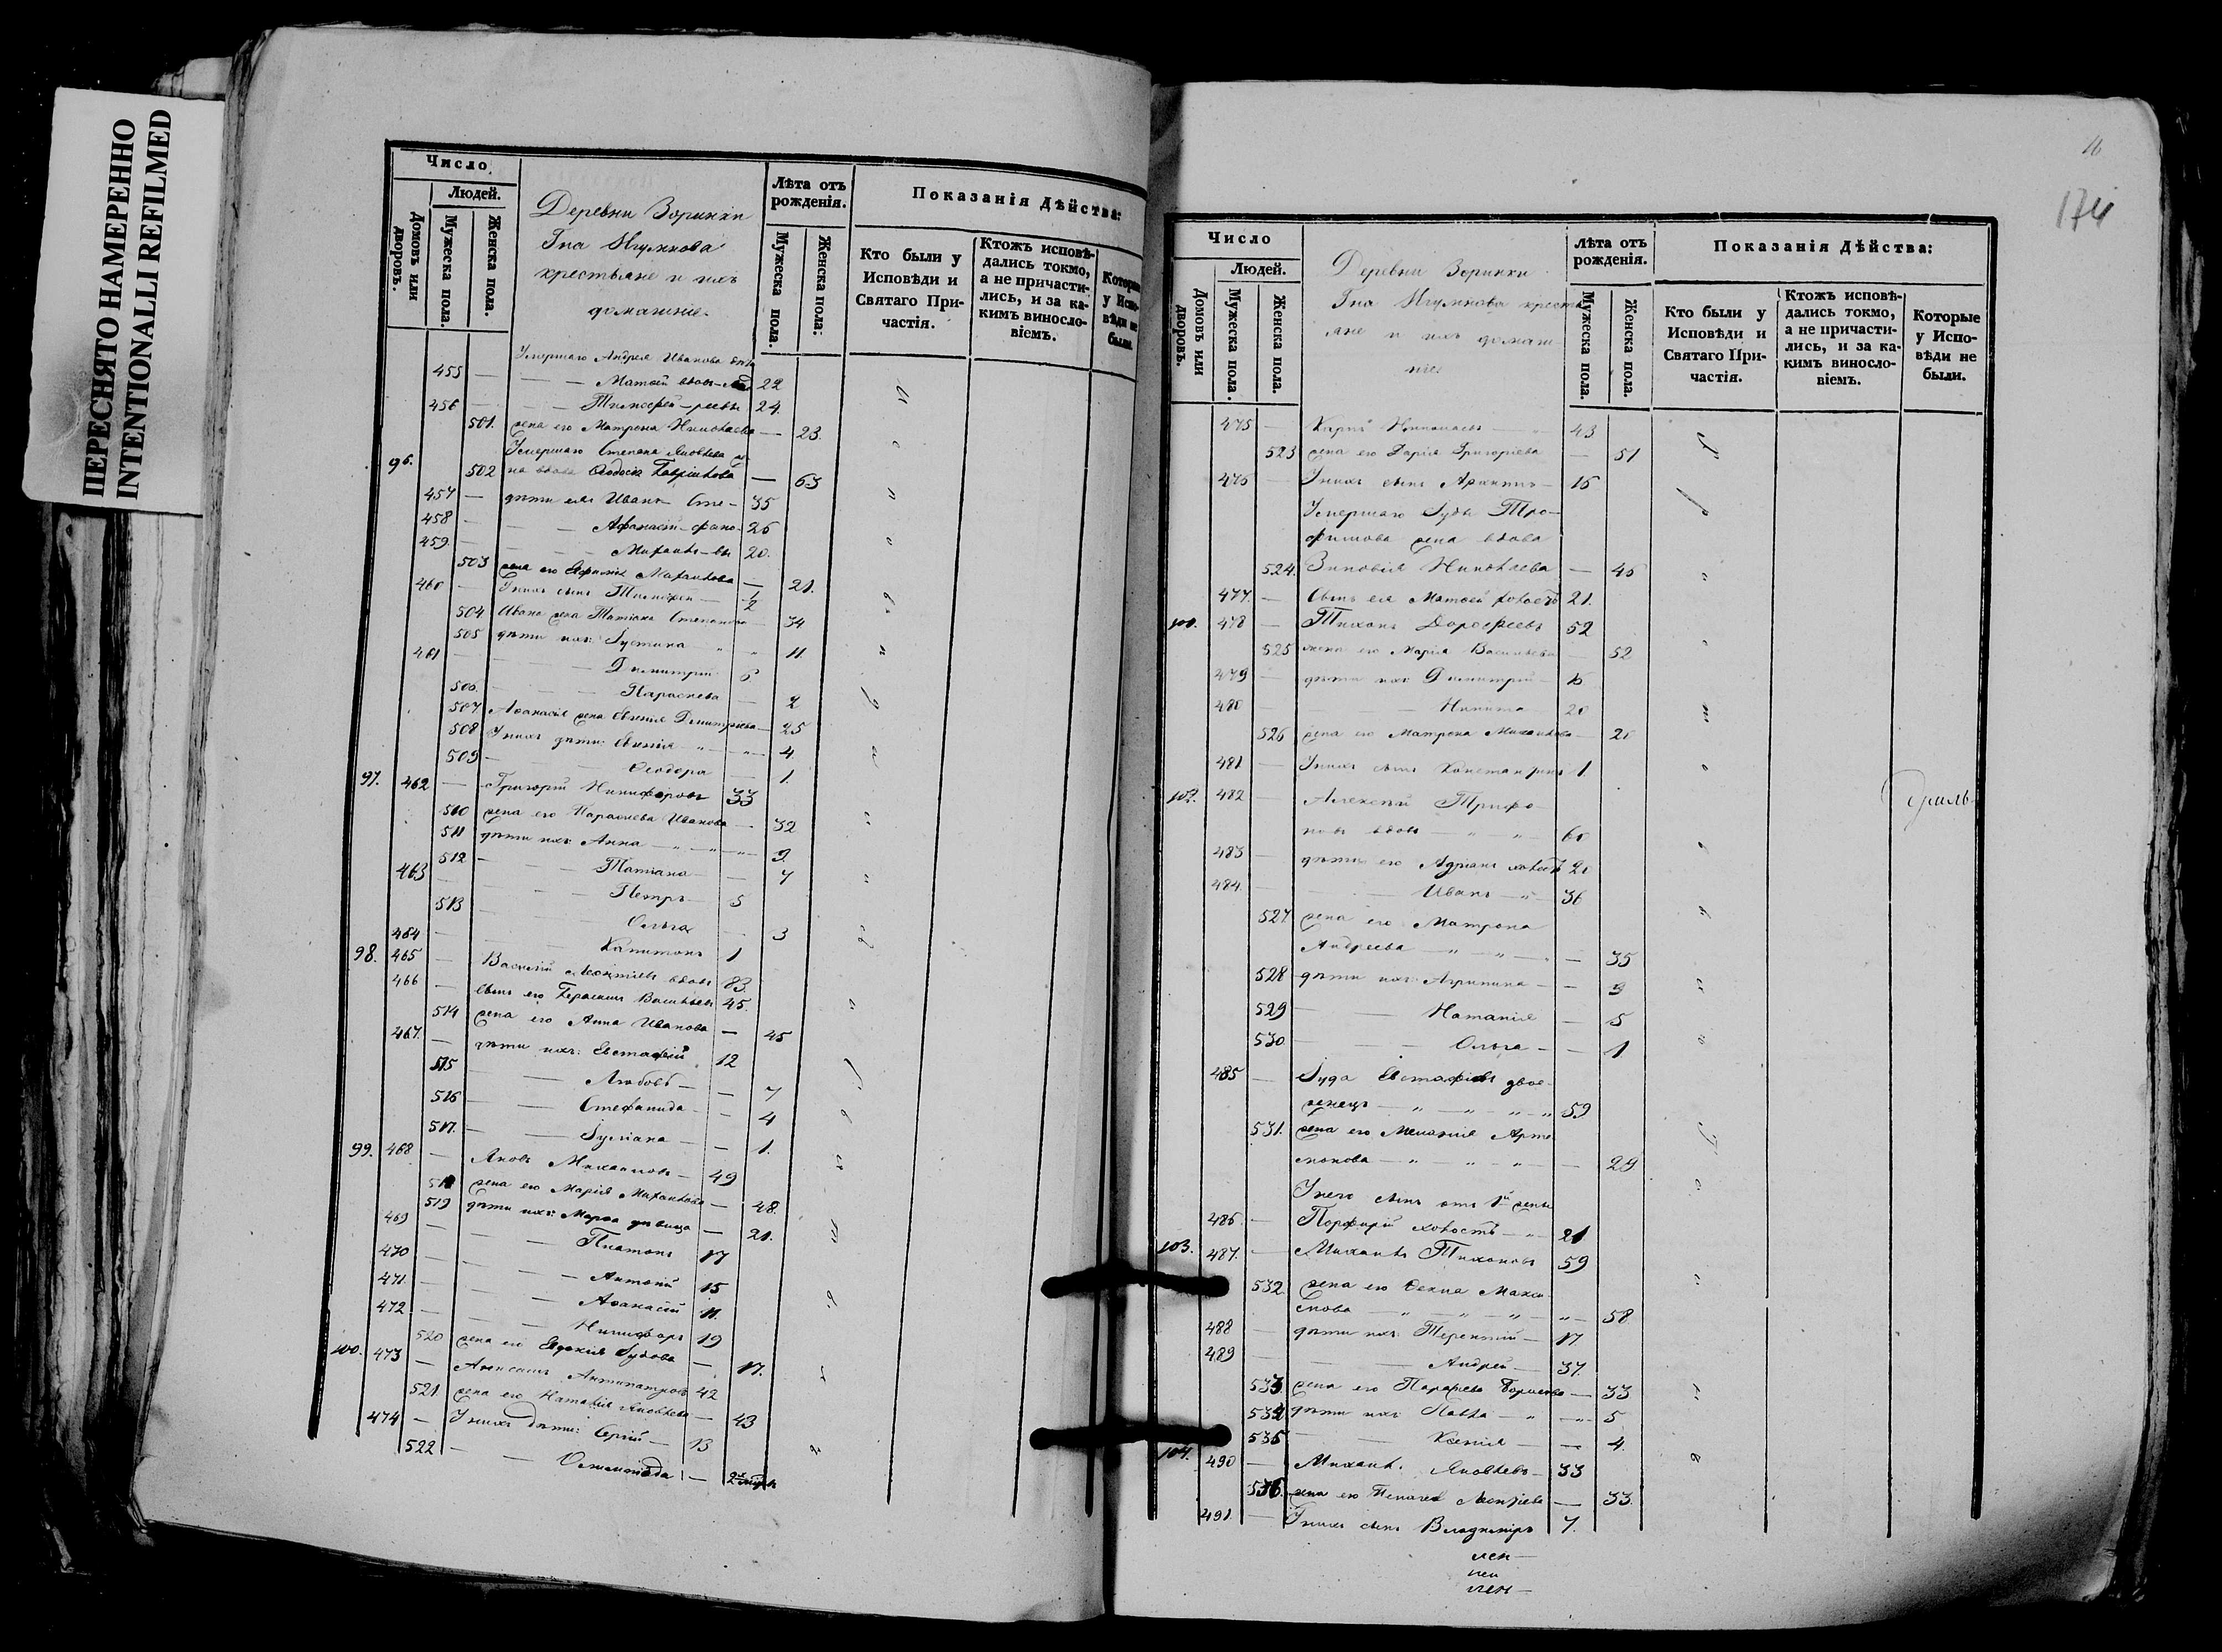 ПЕРЕСНЯТО НАМЕРЕННО
INTENTIONALLI REFILMED
Число
Людей.
Домовъ или дворовъ.
Мужеска пола.
Женска пола.
Деревни Зоринки
Гна
крестьяне и ихъ
домашніе.
Лѣта отъ рожденія.
Мужеска пола.
Женска пола:
Показанія Дѣйства:
Кто были у Исповѣди и Святаго Причастія.
Ктожъ исповѣдались токмо, а не причастились, и за какимъ винословіемъ.
Которые у Исповѣди не были.
Умершаго Андрея Иванова дѣти
455 — — — Матѳей вдовъ 22
456 — — Тимофей 24.
501. жена его Матрона Николаева — 23.
Умершаго Степана Яковлева же-
96. 502 на вдова Ѳеодосія Гаврилова — 63
457 — дѣти ея Иванъ Сте- 35
458 — — Афанасій -фано- 26
459. — — Михаилъ -вы 20.
503 жена его Евфимія Михаилова — 21.
460 — У нихъ сынъ Тимофей — 1/2
504 Ивана жена Татіана Степанова 34
505 дѣти ихъ: Іустина 11
461 — — Димитрій 6
506. — — Параскева 2
507 Аѳанасія жена Евгенія Димитріева — 25
508 У нихъ дѣти: Евгенія 4
509 — Ѳеодора — 1.
97. 462 — Григорій Никифоровъ 33
510 жена его Параскева Иванова — 32
511 дѣти ихъ: Анна 9.
512 — — Татіана — 7
463 — — Петръ — 5
513 — — Ольга — 3
464 — — Капитонъ 1
98. 465 — Василій Леонтіевъ вдовъ 83.
466 — сынъ его Герасимъ Васильевъ 45.
514 жена его Анна Иванова — 45
467. — дѣти ихъ: Евстафій 12
515 — Любовь — 7
516 — Стефанида — 4
517. — Іуліана — 1.
99. 468 — Яковъ Михаиловъ — 49
518 жена его Марія Михаилова — 48.
519 дѣти ихъ: Марѳа дѣвица — 21.
469 — — Платонъ 17
470 — — Антоній 15
471. — — Аѳанасій 11.
472 — — Никифоръ 19
520 жена его Евдокія Іудова — 17.
100. 473 — Алексѣй Антипатровъ 42
521. жена его Наталія Яковлева — 43
474 — У нихъ дѣти: Сергій — 13
522 — — Олимпіада —
174
Число
Людей.
Домовъ или дворовъ.
Мужеска пола.
Женска пола.
Деревни Зоринки
Гна кресть
яне и ихъ домаш
ніе
Лѣта отъ рожденія.
Мужеска пола.
Женска пола.
Показанія Дѣйства:
Кто были у Исповѣди и Святаго Причастія.
Ктожъ исповѣдались токмо, а не причастились, и за какимъ винословіемъ.
Которые у Исповѣди не были.
475 — Карпъ Николаевъ — 43
523 жена его Дарія Григоріева — 51
476 — У нихъ сынъ 16
Умершаго Іуды Тро-
фимова жена вдова
524. Зиновія Николаева — 46
477. — Сынъ ея Матѳей холостъ 21.
478 — Тихонъ Дороѳеевъ 52
525 жена его Марія Васильева — 52
479 — дѣти ихъ Димитрій —
480 — — Никита — 20
526 жена его Матрона Михаилова —
481 — У нихъ сынъ Константинъ 1.
102. 482 — Алексѣй Трифо-
новъ вдовъ
483 — дѣти его Адріанъ холостъ
484. — — Иванъ — 36
527. жена его Матрона
Андреева — 35
528 дѣти ихъ: Агрипина — 9
529 — Наталія — 5
530 — — Ольга — 1
485 — Іуда Евстафіевъ двое-
женецъ 59
531. жена его Меланія Арте
монова — 29
У него сынъ отъ 1й жены
486. — Порфирій холостъ 21
103. 487. — Михаилъ Тихоновъ 59
532 жена его Ѳекла Макси
мова 58
488 — дѣти ихъ: Терентій — 17.
489 — — Андрей — 37.
533. жена его Параскева Борисова — 33
534 дѣти ихъ 5
535 — — Ксенія — 4.
104. 490 — Михаилъ Яковлевъ — 33
536. жена его Пелагея Леонтіева — 33.
491. — У нихъ сынъ Владиміръ 7.